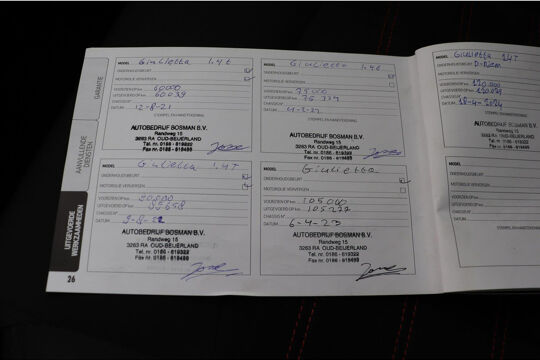 GARANTIE
AANVULLENDE
DIENSTEN
UITGEVOERDE
WERKZAAMHEDEN
26
MODEL Giulietta 1.4t
ONDERHOUDSBEURT
MOTOROLIE VERVERSEN
VOORZIEN OP km 60000
UITGEVOERD OP km 60039
CHASSIS Nº
DATUM 12-8-21
STEMPEL EN HANDTEKENING
AUTOBEDRIJF BOSMAN B.V.
Randweg 15
3263 RA OUD-BEIJERLAND
Tel. nr. 0186 - 619222
Fax nr. 0186 - 619488
MODEL Giulietta 1.4t
ONDERHOUDSBEURT
MOTOROLIE VERVERSEN
VOORZIEN OP km 75000
UITGEVOERD OP km
CHASSIS Nº
DATUM
STEMPEL EN HANDTEKENING
AUTOBEDRIJF BOSMAN B.V.
Randweg 15
3263 RA OUD-BEIJERLAND
Tel. nr. 0186 - 619222
Fax nr. 0186 - 619488
MODEL Giulietta 1.4T
ONDERHOUDSBEURT
MOTOROLIE VERVERSEN
VOORZIEN OP km 90000
UITGEVOERD OP km
CHASSIS Nº
DATUM
AUTOBEDRIJF BOSMAN B.V.
Randweg 15
3263 RA OUD-BEIJERLAND
Tel. nr. 0186 - 619222
Fax nr. 0186 - 619488
MODEL Giulietta
ONDERHOUDSBEURT
MOTOROLIE VERVERSEN
VOORZIEN OP km 105000
UITGEVOERD OP km 105277
CHASSIS Nº
DATUM 6-4-23
AUTOBEDRIJF BOSMAN B.V.
Randweg 15
3263 RA OUD-BEIJERLAND
Tel. nr. 0186 - 619222
Fax nr. 0186 - 619488
MODEL Giulietta 1.4T
ONDERHOUDSBEURT
MOTOROLIE VERVERSEN
VOORZIEN OP km 120.000
UITGEVOERD OP km
CHASSIS Nº
DATUM 18-4-2024
STEMPEL EN HANDTEKENING
AUTOBEDRIJF BOSMAN B.V.
Randweg 15
MODEL
ONDERHOUDSBEURT
MOTOROLIE VERVERSEN
VOORZIEN OP km
UITGEVOERD OP km
CHASSIS Nº
DATUM